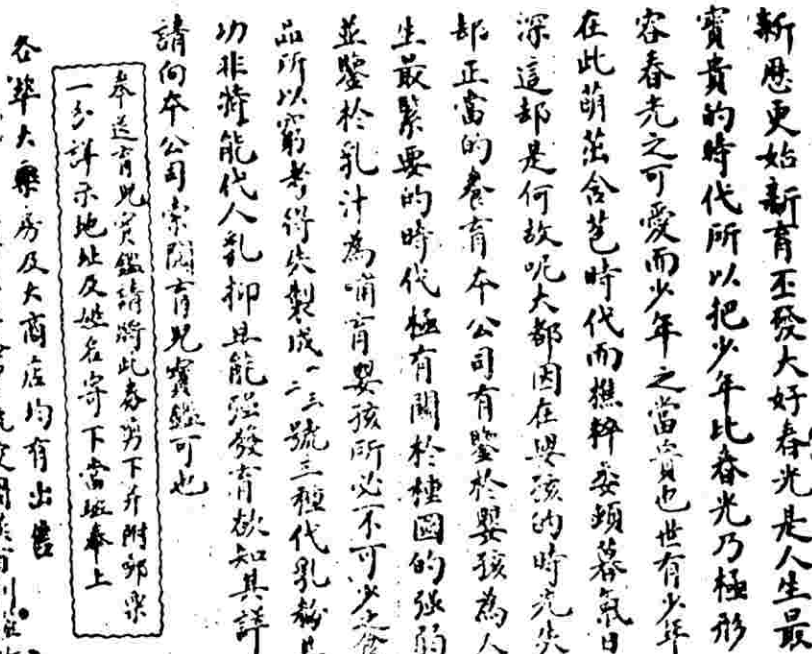 新歷更始新育丕發大好春光是人生最
寶貴的時代所以把少年比春光乃極形
容春光之可愛而少年之當貴也世有少年
在此萌茁含苞時代而樵粹委頓暮氣日
深這卻是何故呢大都因在嬰孩的時光失
却正當的養育本公司有鑒於嬰孩為人
生最緊要的時代極有關於種國的强弱
並鑒於乳汁為哺育嬰孩所必不可少之食
品所以窮考得失製成一二三號三種代乳粉其
功非特能代人乳抑且能强發育欲知其詳
請向本公司索閱育兒寶鑑可也
奉送育兒寶鑑請將此券剪下并附郵票
一分詳示地址及姓名寄下當班奉上
各華大藥房及大商店均有出售